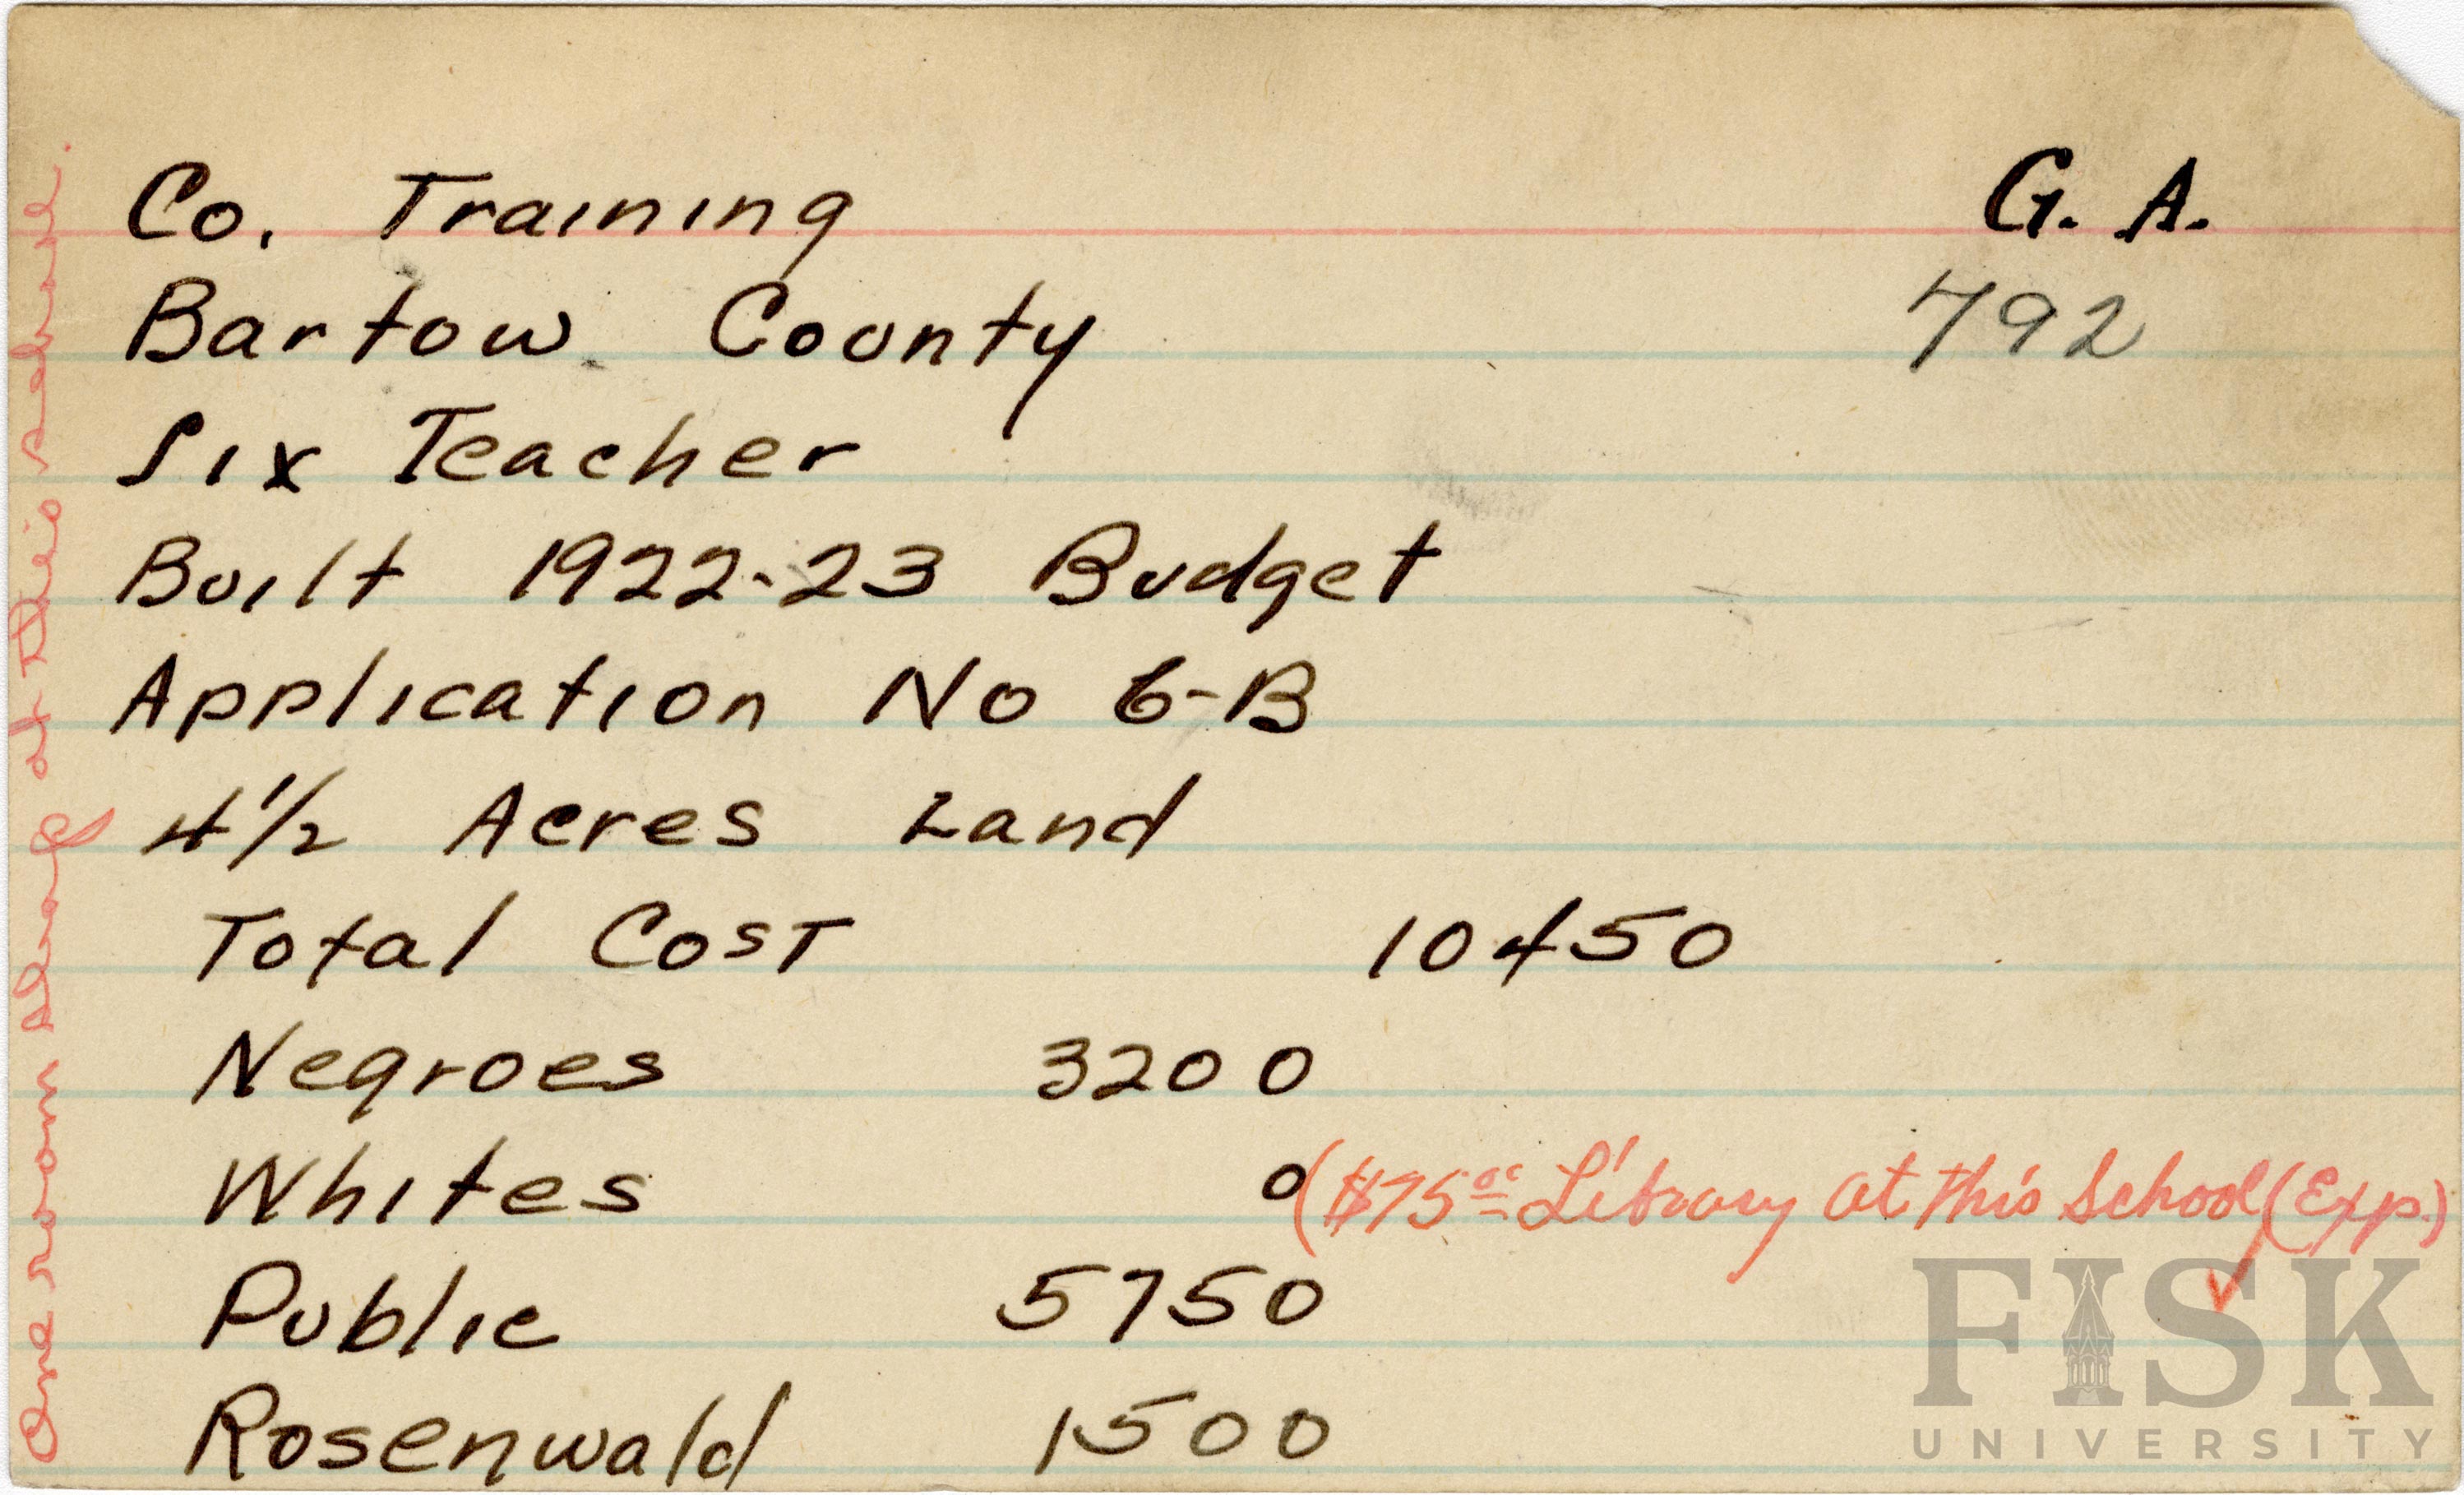 Co. Training G. A.
Bartow County 792
Six Teacher
Built 1922-23 Budget
Application No 6-B
4 1/2 Acres Land
Total Cost 10450
Negroes 3200
Whites 0 ($75 00 Library at this School (Exp.)
Public 5750
Rosenwald 1500
One room shop at this school.
FISK
UNIVERSITY